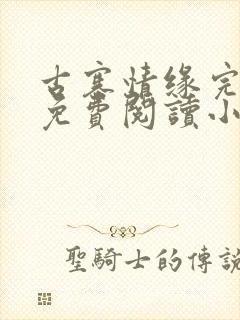 古寨情缘完
免費閱讀小
聖騎士的傳說